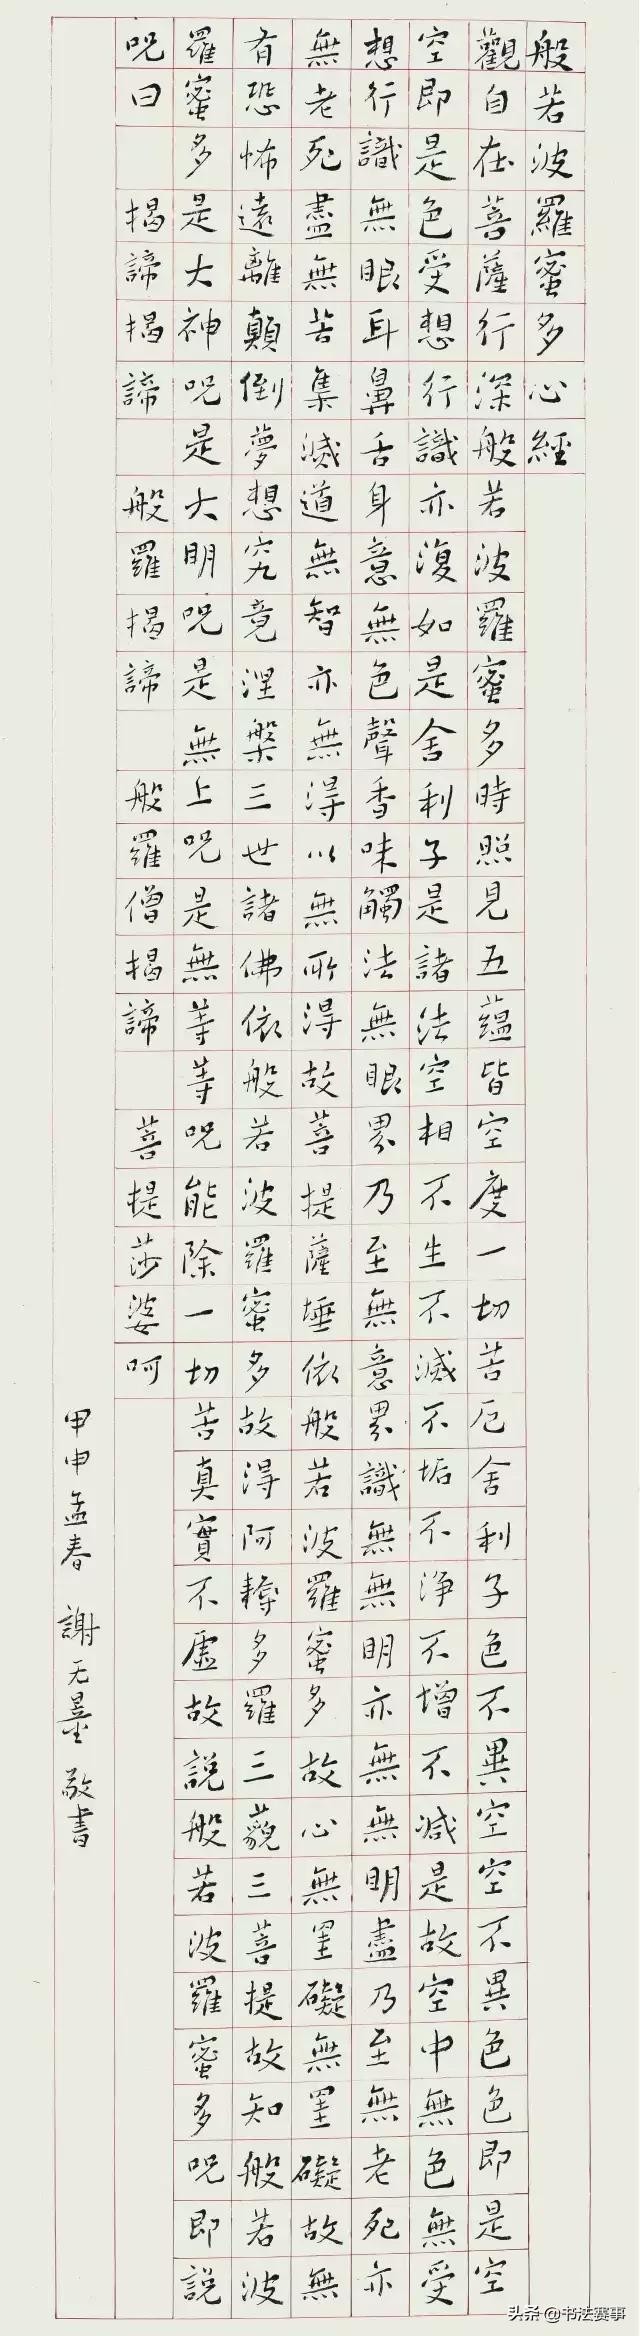 般若波羅蜜多心經
觀自在菩薩行深般若波羅蜜多時照見五蘊皆空度一切苦厄舍利子色不異空空不異色色即是空
空即是色受想行識亦復如是舍利子是諸法空相不生不滅不垢不淨不增不減是故空中無色無受
想行識無眼耳鼻舌身意無色聲香味觸法無眼界乃至無意界識無無明亦無無明盡乃至無老死亦
無老死盡無苦集滅道無智亦無得以無所得故菩提薩埵依般若波羅蜜多故心無罣礙無罣礙故無
有恐怖遠離顛倒夢想究竟涅槃三世諸佛依般若波羅蜜多故得阿耨多羅三藐三菩提故知般若波
羅蜜多是大神呪是大明呪是無上呪是無等等呪能除一切苦真實不虛故說般若波羅蜜多呪即說
呪曰 揭諦揭諦 般羅揭諦 般羅僧揭諦 菩提莎婆呵
甲申孟春 謝无量 敬書
头条 @书法赛事